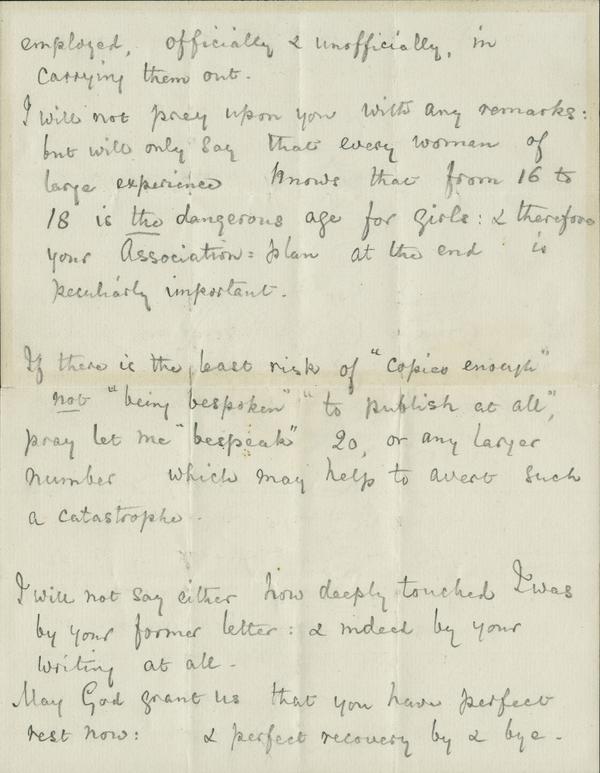 employed, officially & unofficially, in
carrying them out.
I will not prey upon you with any remarks:
but will only say that every woman of
large experience knows that from 16 to
18 is the dangerous age for girls: & therefore
your Association = plan at the end is
peculiarly important.
If there is the least risk of "copies enough"
not "being bespoken" "to publish at all",
pray let me "bespeak" 20, or any larger
number which may help to avert such
a catastrophe.
I will not say either how deeply touched I was
by your former letter: & indeed by your
writing at all.
May God grant us that you have perfect
rest now: & perfect recovery by & bye.